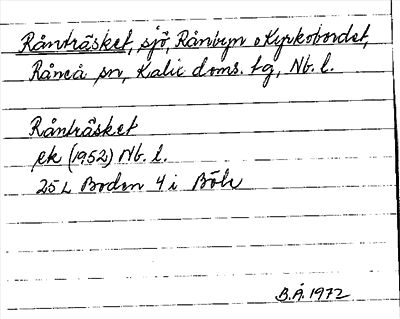 Rånträsket, sjö, Rånbyn o Kyrkobordet,
Råneå sn, Kalix doms. tg, Nb. l.
Rånträsket
ek (1952) Nb. l.
25 L Boden 4 i Böle
B.Å. 1972